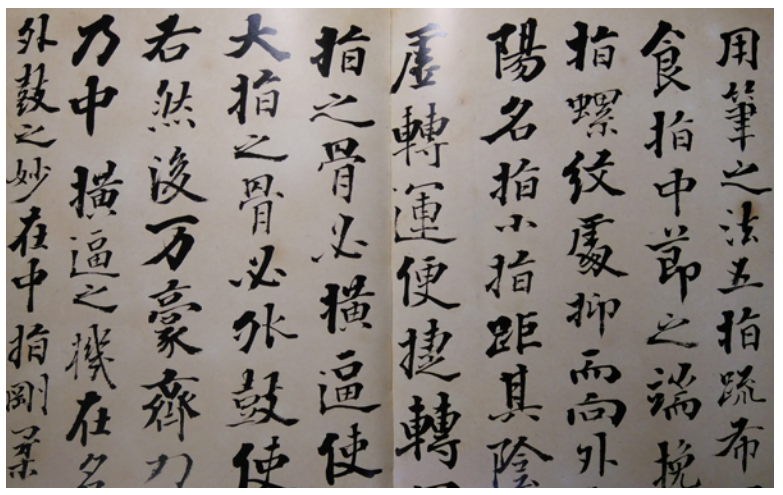 用筆之法五指疏布
食指中節之端挽
指螺紋處抑而向外
陽名指小指距其陰
虛轉運便捷轉
指之骨必橫逼使
大指之骨必外鼓使
右然後万豪齊力
乃中橫逼之機在名
外鼓之妙在中指剛柔